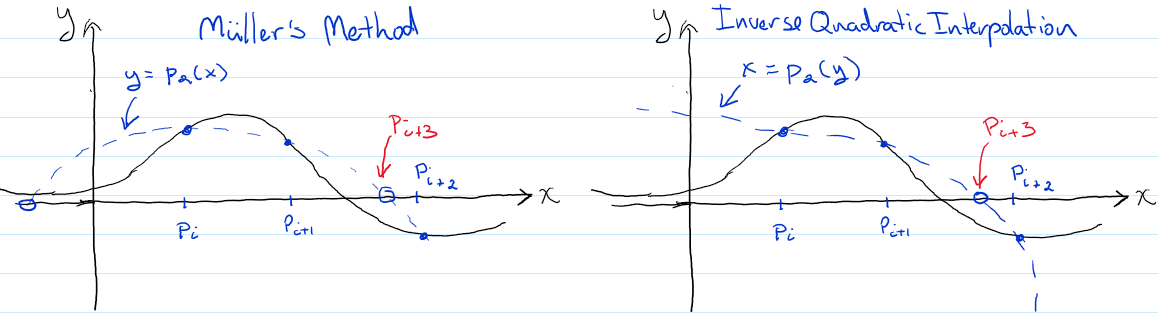 y
Müller's Method
y = p₂(x)
Pᵢ₊₃
Pᵢ₊₂
x
Pᵢ
Pᵢ₊₁
y
Inverse Quadratic Interpolation
x = p₂(y)
Pᵢ₊₃
Pᵢ₊₂
x
Pᵢ
Pᵢ₊₁